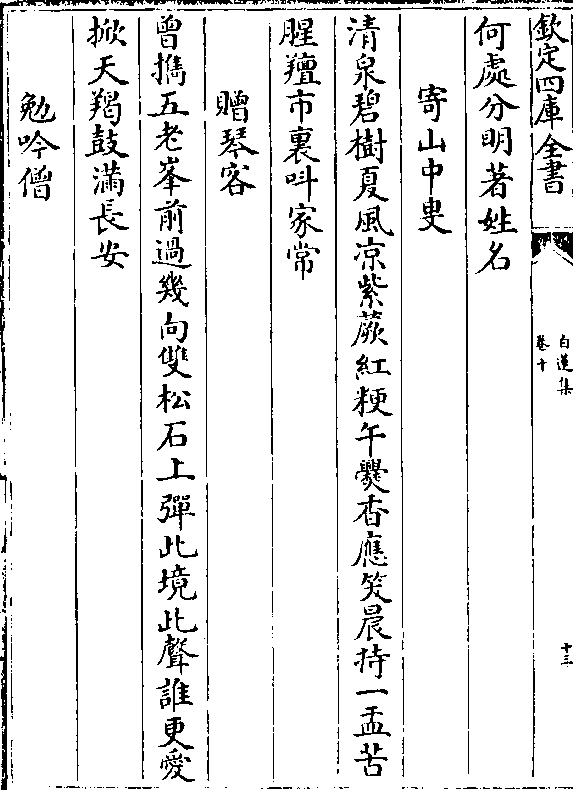 欽定四庫全書
白蓮集
卷十
十三
何處分明著姓名
寄山中叟
清泉碧樹夏風凉紫蕨紅粳午爨香應笑晨持一盂苦
腥羶市裏呌家常
贈琴客
曾攜五老峯前過幾向雙松石上彈此境此聲誰更愛
掀天羯鼓滿長安
勉吟僧